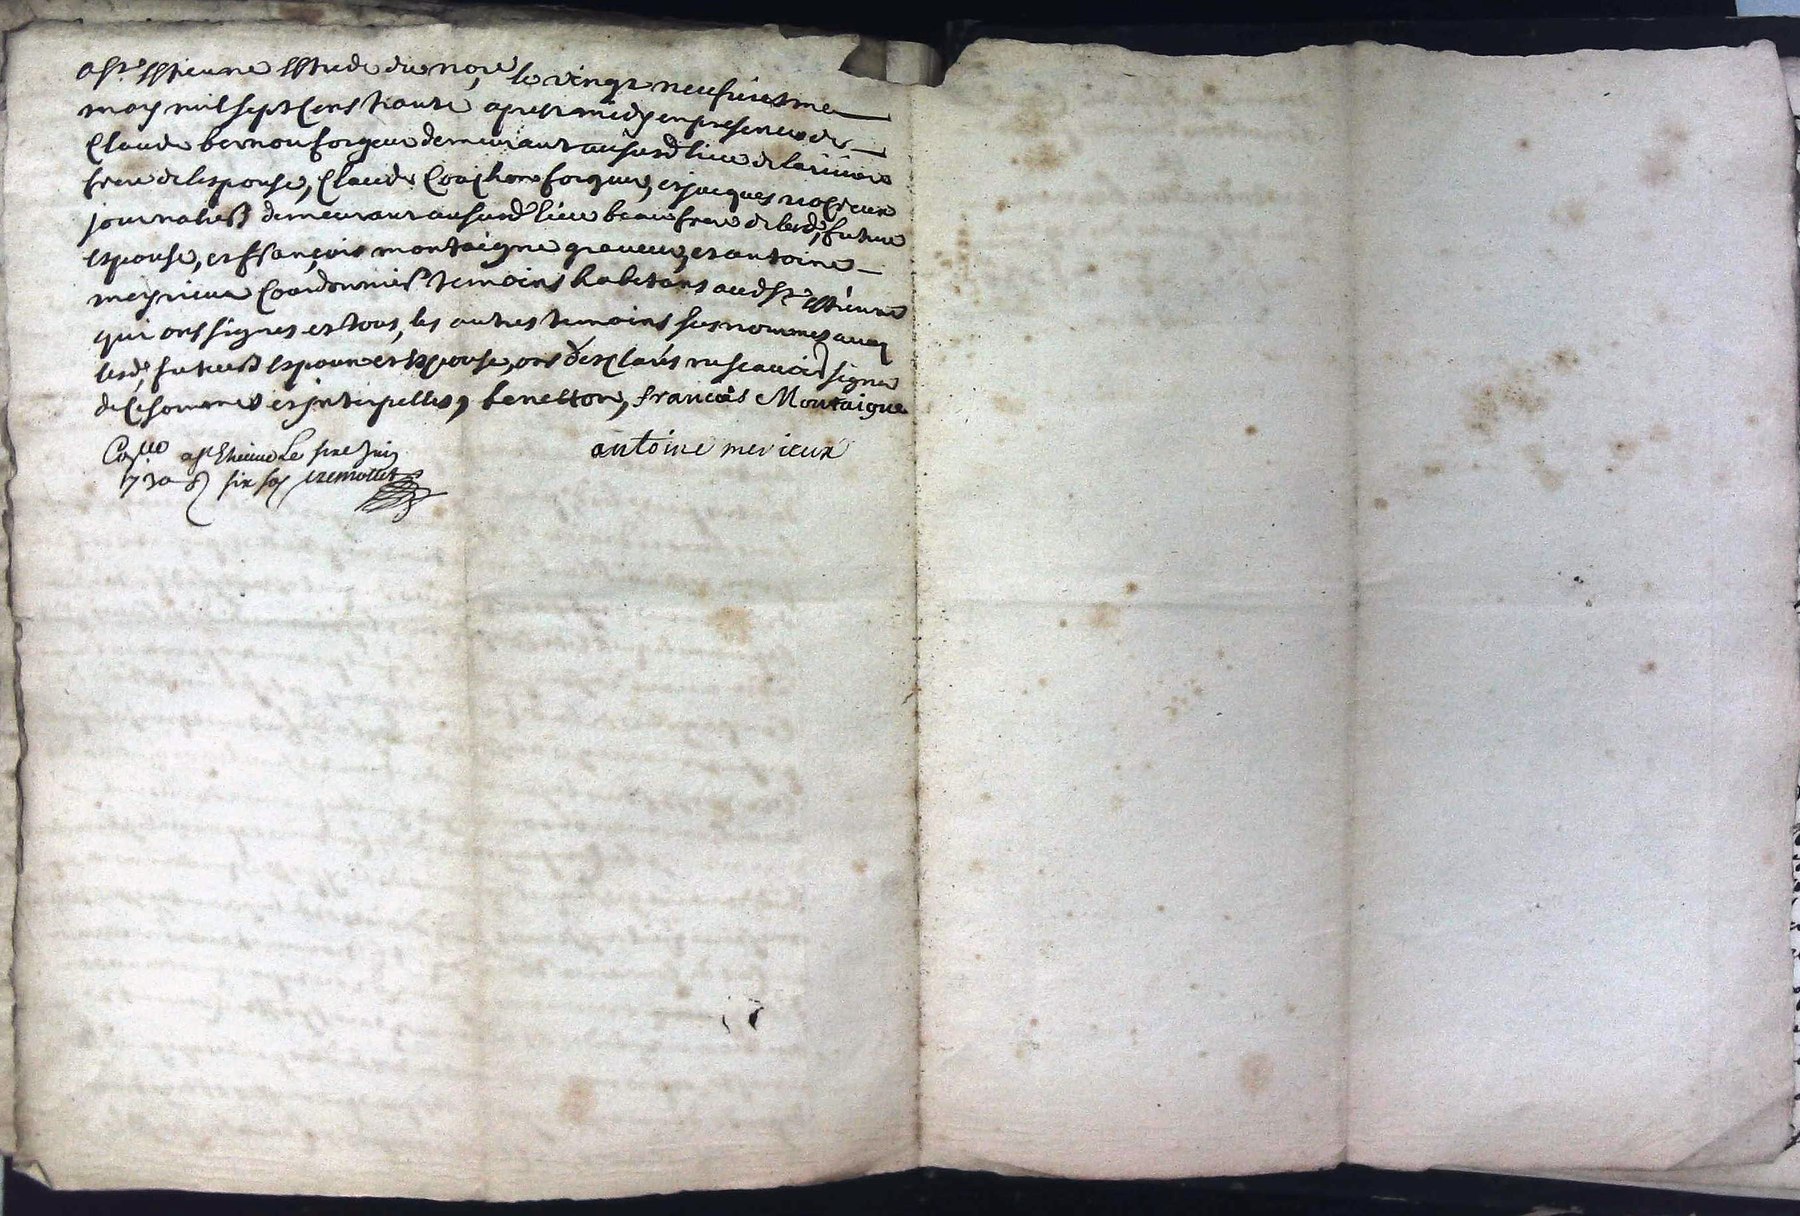 a st estienne estude du no.re le vingt neufviesme
may mil sept cens trante apres midy en presence de
Claude bernou forgeur demeurant aususd lieu de lariviere
frere de lespouse, Claude forgeur, et jacques
journalier demeurant aususd lieu beau frere de lad, future
espouse, et francois montaigne graveur, et antoine
meyrieux Cordonnier temoins habitans aud st estienne
qui ont signes et tous, les autres temoins susnommes avec
lesd, futurs espoux et espouse, ont declares ne scavoir signer
de ce sommes et interpelles, benetton, francois Montaigne
antoine merieux
Con.lle a st Etienne Le sixe Juin
1730 R six sols